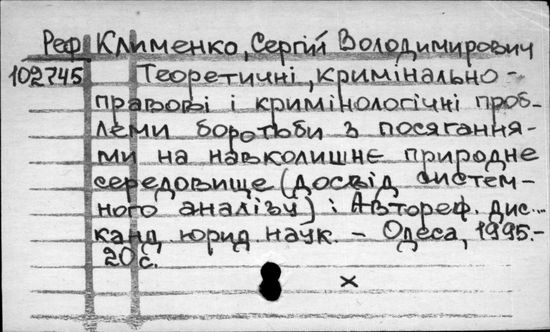 Реф Клименко, Сергій Володимирович
102745 Теоретичні, кримінально-
правові і кримінологічні проб-
леми боротьби з посягання-
ми на навколишнє природне
середовище (досвід систем-
ного аналізу) : Автореф. дис...
канд. юрид. наук. – Одеса, 1995.–
20 с.
×